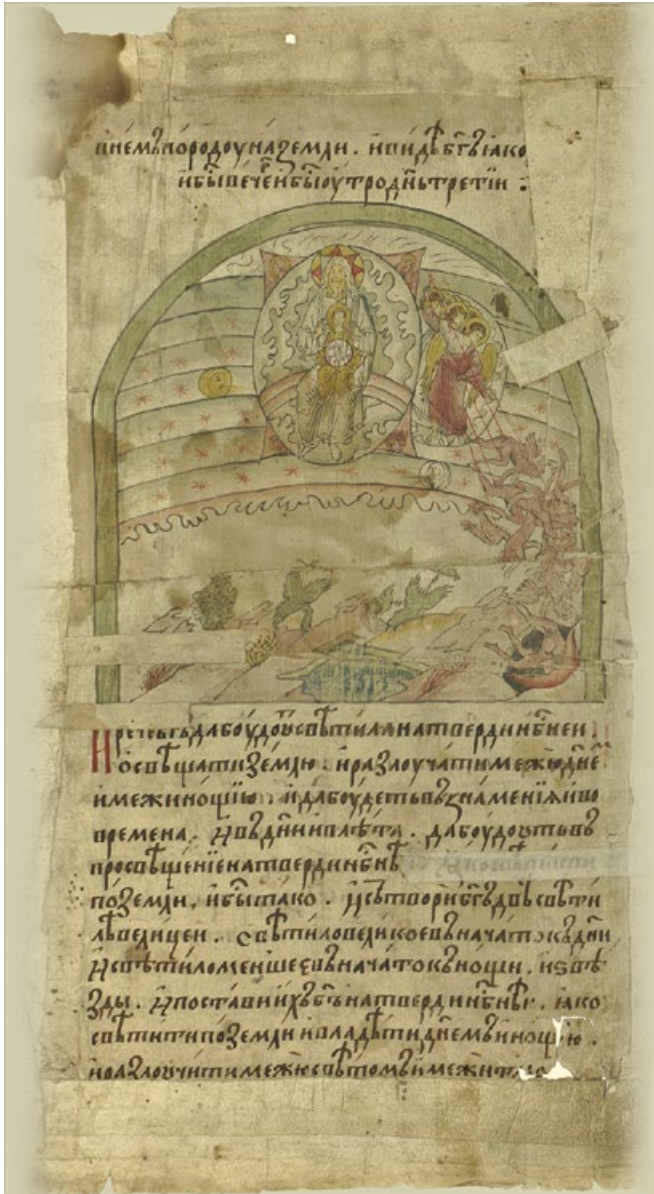 внемъпородоуназемли. ивидѣбг҃ъіако
ибы́вече́риибы́оу́тродн҃ьтретїи:
Иречебг҃ъдабоудоу́свѣти́лянатвердинбн҃ѣи.
освѣщатизе́млю. иразлоуча́тимежюдне҃
имежинощїю. идабоу́детьвъзна́менїѧиво
времена. ивъдн҃ииивлѣ́та. дабоудоутьвъ
просвѣще́нїенатвердинбн҃ѣ
поземли. ибы́тако. исътворибг҃ъдвѣсвѣти
лѣвели́цеи. свѣти́ловели́коевънача́токъдн҃и
исвѣти́ломе́ншеевънача́токъно́щи. извѣ
зды. ипоста́виихъбг҃ънатвердинбн҃ѣи. іако
свѣти́типоземлиивладѣ́тидне́мъино́щїю.
иразлоучи́тимежюсвѣ́томъимежи